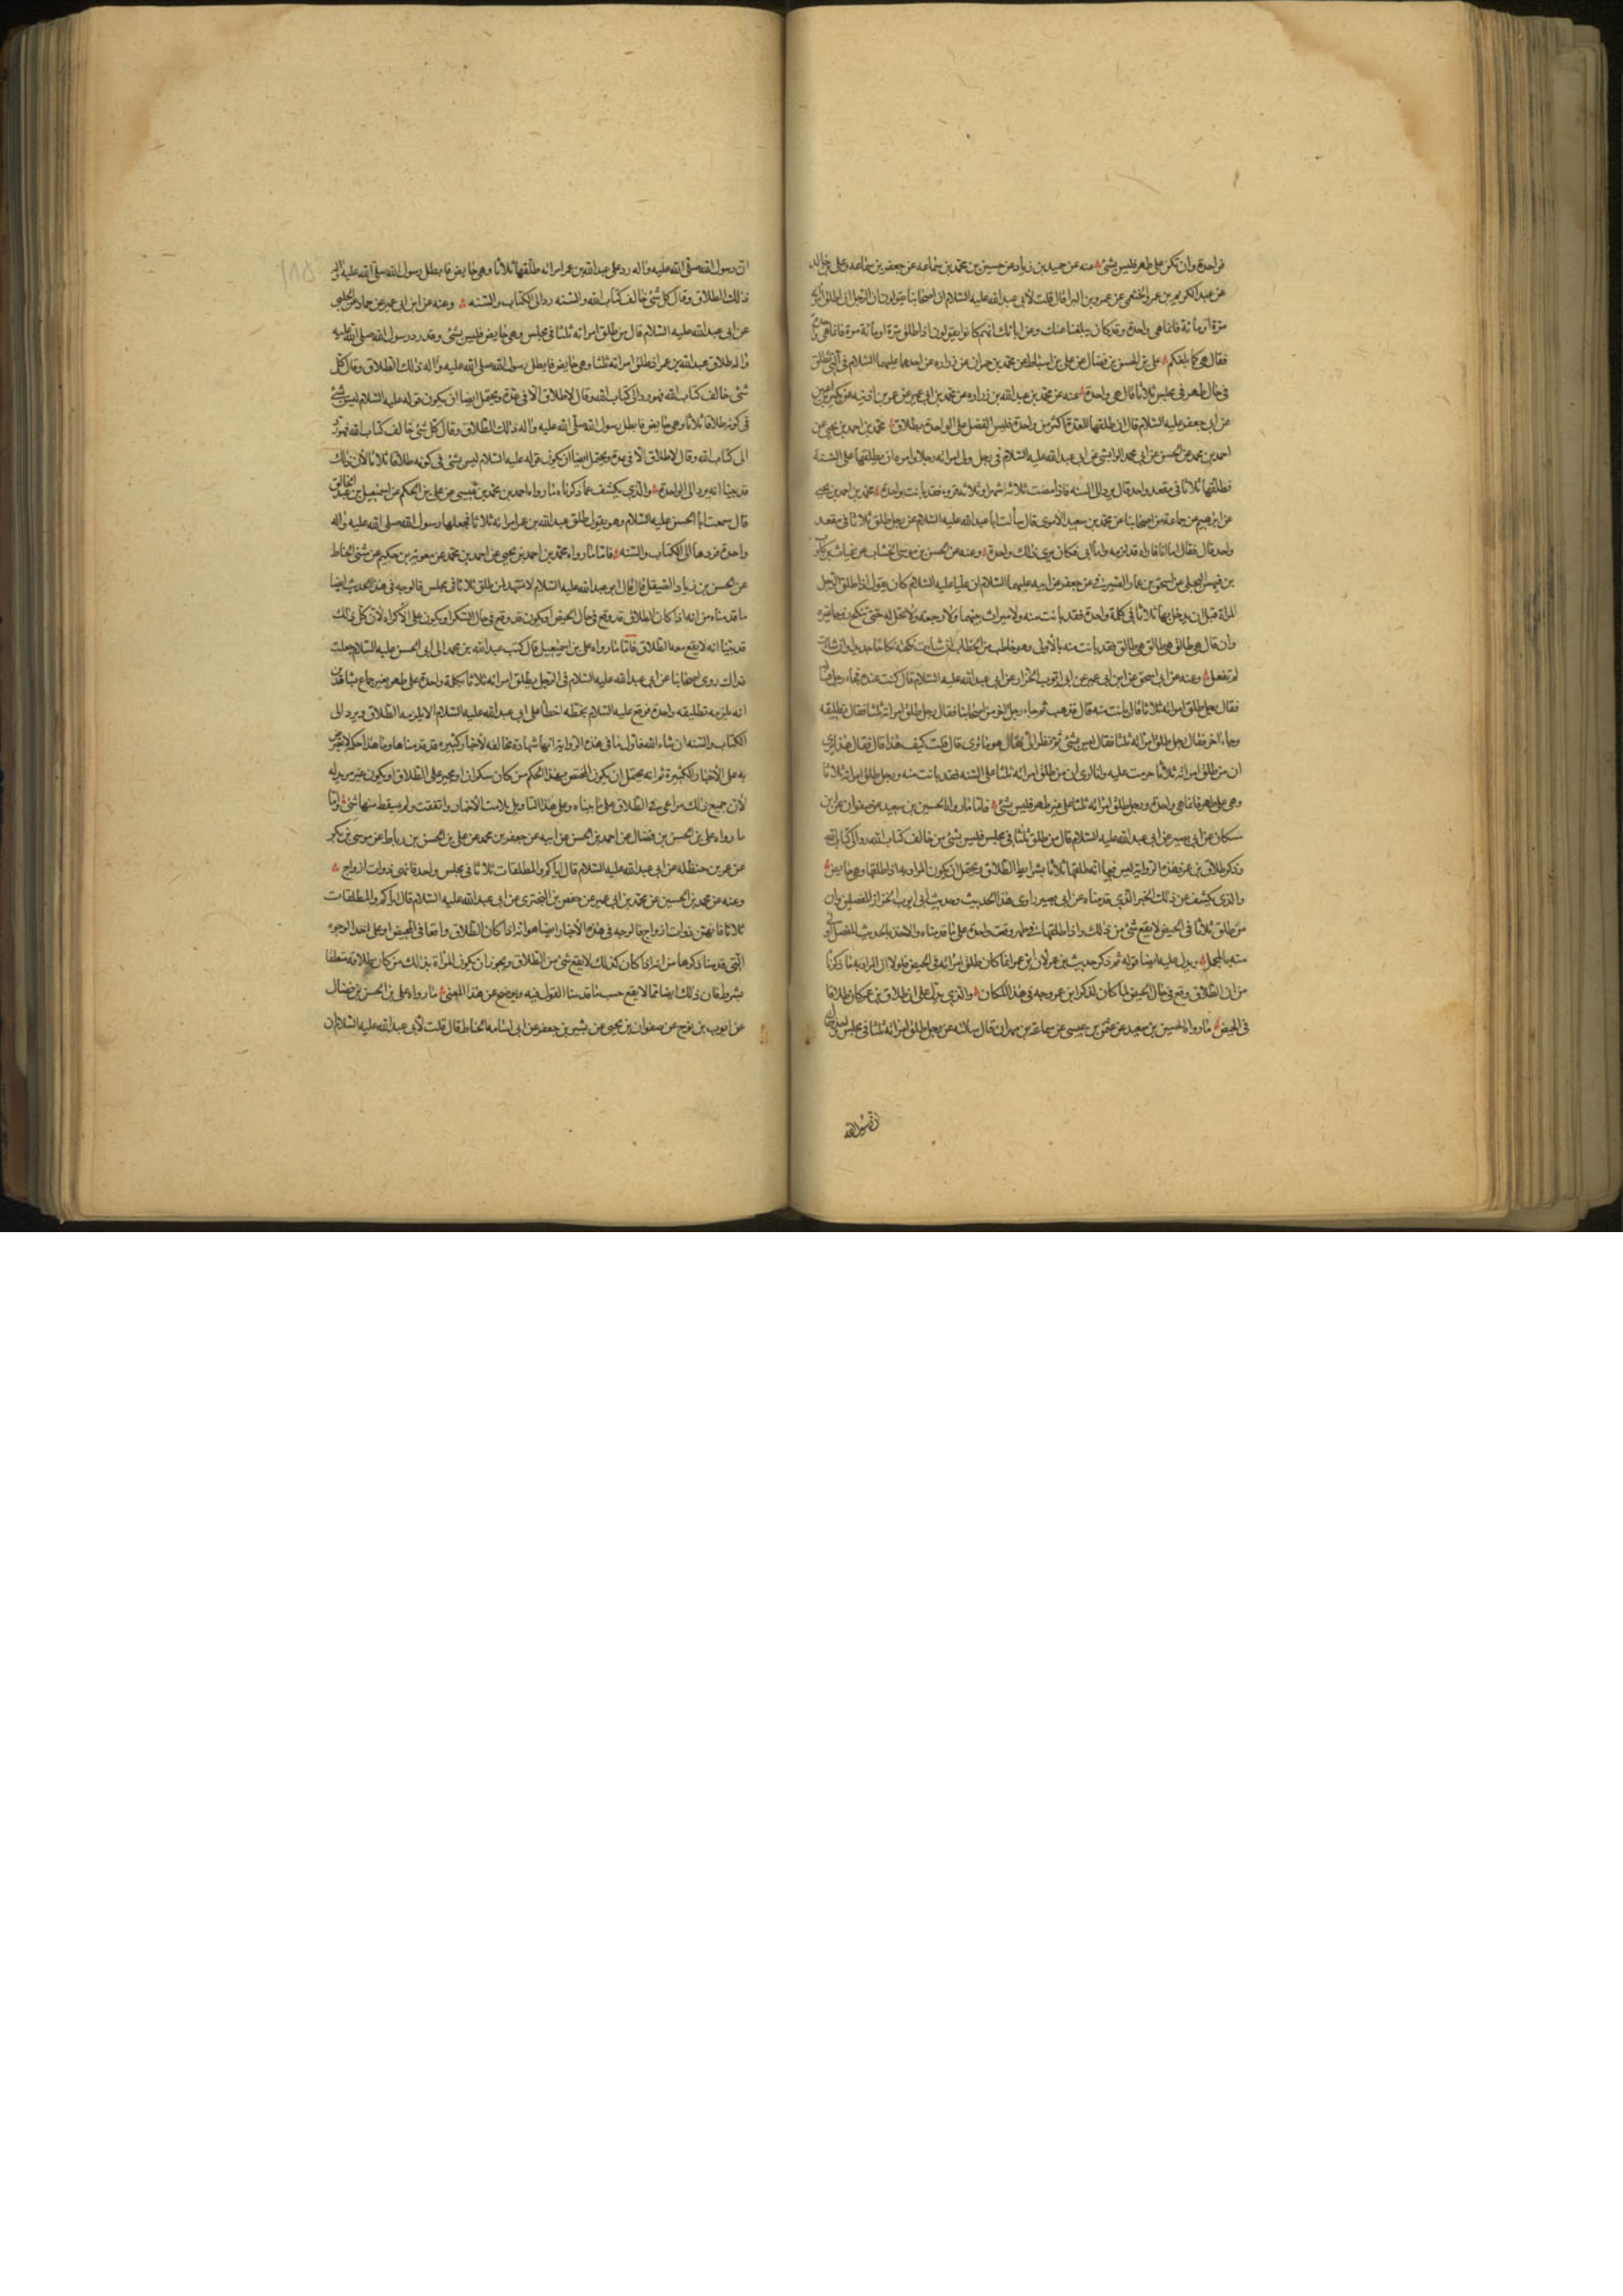 فواحدة وان تكن على طهر فليس بشئ عنه عن حميد بن زياد عن حسن بن محمد بن سماعه عن جعفر بن سماعه وعلى بن خالد
عن عبد الكريم بن عمرو الخثعمى عن عمرو بن البراء قال قلت لأبى عبد الله عليه السلام ان اصحابنا يقولون ان الرجل اذا طلق امرأته
مرة او مائة فانما هى واحدة وقد كان يبلغنا عنك وعن ابائك انهم كانوا يقولون اذا طلق مرة او مائة مرة فانما هى واحدة
فقال هى كما بلغكم على بن الحسن بن فضال عن على بن اسباط عن محمد بن حمران عن زراره عن احدهما عليهما السلام فى التى تطلق
فى حال طهر فى مجلس ثلاثا قال هى واحدة عنه عن محمد بن عبد الله بن زراره عن محمد بن ابى عمير عن عمر بن اذينه عن بكير بن اعين
عن ابى جعفر عليه السلام قال ان طلقها للعدة اكثر من واحدة فليس الفضل على الواحدة بطلاق محمد بن احمد بن يحيى عن
احمد بن محمد عن الحسن عن ابى محمد الوابشى عن ابى عبد الله عليه السلام فى رجل ولى امرأته رجلا وامره ان يطلقها على السنة
فطلقها ثلاثا فى مقعد واحد قال يرد الى السنه فاذا مضت ثلاثة اشهر او ثلاثة قروء فقد بانت بواحدة محمد بن احمد بن يحيى
عن ابرهيم عن جماعة من اصحابنا عن محمد بن سعيد الاموى قال سألت ابا عبد الله عليه السلام عن رجل طلق ثلاثا فى مقعد
واحد قال فقال اما انا فاراه قد لزمه واما ابى فكان يرى ذلك واحدة وعنه عن الحسن بن موسى الخشاب عن غياث بن كلوب
بن فيهس البجلى عن اسحق بن عمار الصيرفى عن جعفر عن ابيه عليهما السلام ان عليا عليه السلام كان يقول اذا طلق الرجل
المراة قبل ان يدخل بها ثلاثا فى كلمة واحدة فقد بانت منه ولا ميراث بينهما ولا رجعة ولا تحل له حتى تنكح زوجا غيره
وان قال هى طالق هى طالق هى طالق فقد بانت منه بالأولى وهو خاطب من الخطاب ان شاءت نكحته نكاحا جديدا وان شاءت
لم تفعل وعنه عن ابى اسحق عن ابن ابى عمير عن ابى ايوب الخزاز عن ابى عبد الله عليه السلام قال كنت عنده فجاء رجل فسأله
فقال رجل طلق امرأته ثلاثا قال بانت منه قال فذهب ثم جاء رجل اخر من اصحابنا فقال رجل طلق امرأته ثلثا فقال تطليقه
وجاء اخر فقال رجل طلق امرأته ثلثا فقال ليس بشئ ثم نظر الى فقال هو ما ترى قال قلت كيف هذا قال فقال هذا يرى
ان من طلق امرأته ثلاثا حرمت عليه وانا ارى ان من طلق امرأته ثلثا على السنه فقد بانت منه ورجل طلق امرأته ثلاثا
وهى على طهر فانما هى واحدة ورجل طلق امرأته ثلثا على غير طهر فليس بشئ فاما ما رواه الحسين بن سعيد عن صفوان عن ابن
مسكان عن ابى بصير عن ابى عبد الله عليه السلام قال من طلق ثلثا فى مجلس فليس بشئ من خالف كتاب الله رد الى كتاب الله
وذكر طلاق بن عمر فهذه الرواية ليس فيها انه طلقها ثلاثا بشرايط الطلاق ويحتمل ان يكون المراد به اذا طلقها وهى حايض
والذى يكشف عن ذلك الخبر الذى قدمناه عن ابى بصير راوى هذا الحديث وحديث ابى ايوب الخزاز المفصلين وان
من طلق ثلاثا فى الحيض لا يقع شئ من ذلك واذا طلقها فى طهر وقعت واحدة على ما قدمناه والاخذ بالحديث المفصل اولى
منه بالمجمل ويدل عليه ايضا قوله ثم ذكر حديث بن عمر لان ابن عمر انما كان طلق امرأته فى الحيض فلولا ان المراد به ما ذكرنا
من ان الطلاق وقع فى حال الحيض لما كان لذكر ابن عمر وجه فى هذا المكان والذى يدل على ان طلاق بن عمر كان طلاقا
فى الحيض ما رواه الحسين بن سعيد عن عثمن بن عيسى عن سماعة بن مهران قال سألته عن رجل طلق امرأته ثلثا فى مجلس واحد فقال
ان رسول الله
ان رسول الله صلى الله عليه واله رد على عبد الله بن عمر امراته طلقها ثلاثا وهى حايض فابطل رسول الله صلى الله عليه واله
ذلك الطلاق وقال كل شئ خالف كتاب الله والسنه رد الى الكتاب والسنه وعنه عن ابن ابى عمير عن حماد عن الحلبى
عن ابى عبد الله عليه السلام قال من طلق امراته ثلثا فى مجلس وهى حايض فليس بشئ وقد رد رسول الله صلى الله عليه
واله طلاق عبد الله بن عمر اذ طلق امراته ثلثا وهى حايض فابطل رسول الله صلى الله عليه واله ذلك الطلاق وقال كل
شئ خالف كتاب الله فهو رد الى كتاب الله وقال لا طلاق الا فى عدة ويحتمل ايضا ان يكون قوله عليه السلام ليس بشئ
فى كونه طلاقا ثلاثا وهى حايض فابطل رسول الله صلى الله عليه واله ذلك الطلاق وقال كل شئ خالف كتاب الله فهو رد
الى كتاب الله وقال لا طلاق الا فى عدة ويحتمل ايضا ان يكون قوله عليه السلام ليس بشئ فى كونه طلاقا ثلاثا لأن ذلك
قد بينا انه يرد الى الواحدة والذى يكشف عما ذكرناه ما رواه احمد بن محمد بن عيسى عن على بن الحكم عن اسمعيل بن عبد الخالق
قال سمعت ابا الحسن عليه السلام وهو يقول طلق عبد الله بن عمر امراته ثلاثا فجعلها رسول الله صلى الله عليه واله
واحدة فردها الى الكتاب والسنه فاما ما رواه محمد بن احمد بن يحيى عن احمد بن محمد عن معوية بن حكيم عن مثنى الحناط
عن الحسن بن زياد الصيقل قال قال ابو عبد الله عليه السلام لا تشهد لمن طلق ثلاثا فى مجلس فالوجه فى هذا الحديث ايضا
ما قدمناه من انه اذا كان الطلاق قد وقع فى حال الحيض او يكون قد وقع فى حال السكر او يكون على الأكراه لأن كل ذلك
قد بينا انه لا يقع معه الطلاق فاما ما رواه على بن اسمعيل قال كتب عبد الله بن محمد الى ابى الحسن عليه السلام جعلت
فداك روى اصحابنا عن ابى عبد الله عليه السلام فى الرجل يطلق امراته ثلاثا بكلمة واحدة على طهر بغير جماع بشاهدين
انه يلزمه تطليقه واحدة فوقع عليه السلام بخطه اخطأ على ابى عبد الله عليه السلام لا يلزمه الطلاق ويرد الى
الكتاب والسنه ان شاء الله فاول ما فى هذه الرواية انها شاذة مخالفه لأخبار كثيره قد قدمناها وما هذا حكمه لا يعترض
به على الأخبار الكثيرة ثم انه يحتمل ان يكون المختص بهذا الحكم من كان سكران او مجبر على الطلاق او يكون غير مريد له
لأن جميع ذلك مراعى فى الطلاق على ما بيناه وعلى هذا التاويل تلامت الأخبار واتفقت ولم يسقط منها شئ واما
ما رواه على بن الحسن بن فضال عن احمد بن الحسن عن ابيه عن جعفر بن محمد عن على بن الحسن بن رباط عن موسى بن بكر
عن عمر بن حنظله عن ابى عبد الله عليه السلام قال اياكم والمطلقات ثلاثا فى مجلس واحد فانهن ذوات ازواج
وعنه عن محمد بن الحسين عن محمد بن ابى عمير عن حفص بن البخترى عن ابى عبد الله عليه السلام قال اياكم والمطلقات
ثلاثا فانهن ذوات ازواج فالوجه فى هذه الأخبار ايضا هو انه اذا كان الطلاق واقعا فى المحيض او على احد الوجوه
التى قدمنا ذكرها من انه اذا كان كذلك لا يقع شئ من الطلاق ويجوز ان يكون المراد بذلك من كان طلاقه متعلقا
بشرط فان ذلك ايضا مما لا يقع حسب ما قدمنا القول فيه ويوضح عن هذا المعنى ما رواه على بن الحسن بن فضال
عن ايوب بن نوح عن صفوان بن يحيى عن بشير بن جعفر عن ابى اسامه الحناط قال قلت لأبى عبد الله عليه السلام ان